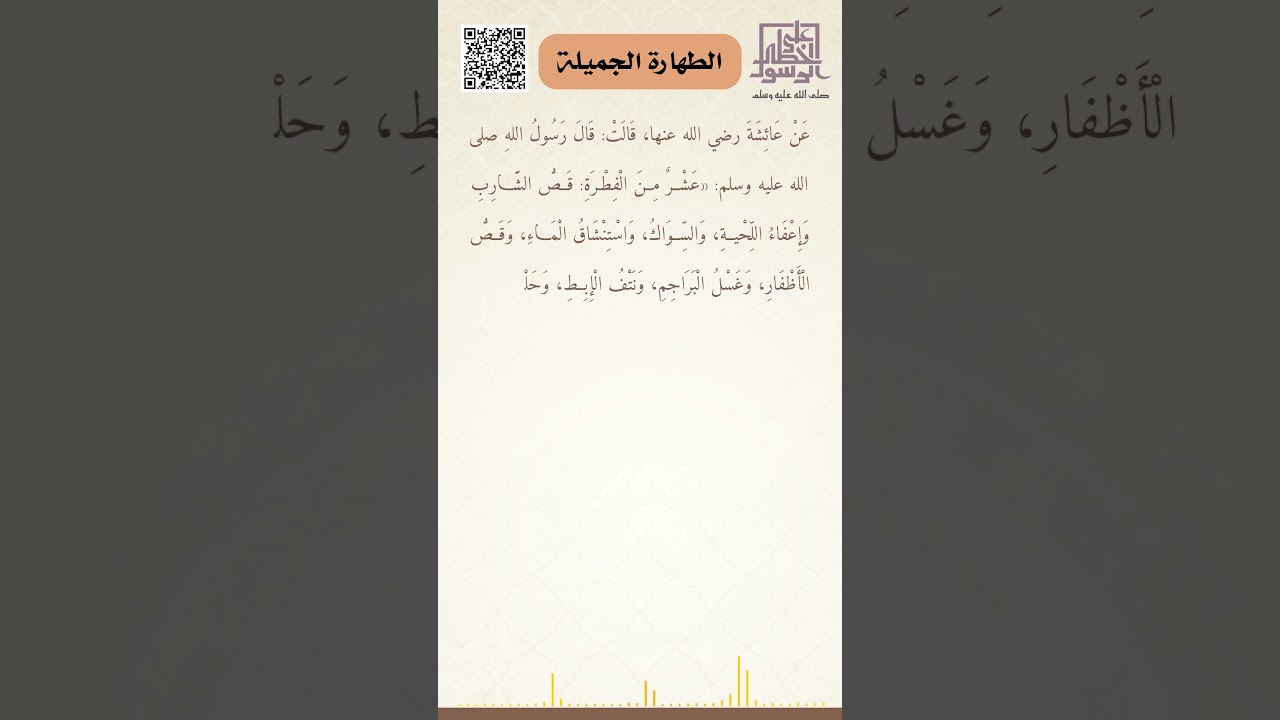 الطهارة الجميلة
على خطى الرسول
صلى الله عليه وسلم
عَنْ عَائِشَةَ رضي الله عنها، قَالَتْ: قَالَ رَسُولُ اللهِ صلى
الله عليه وسلم: «عَشْرٌ مِنَ الْفِطْرَةِ: قَصُّ الشَّارِبِ
وَإِعْفَاءُ اللِّحْيَةِ، وَالسِّوَاكُ، وَاسْتِنْشَاقُ الْمَاءِ، وَقَصُّ
الْأَظْفَارِ، وَغَسْلُ الْبَرَاجِمِ، وَنَتْفُ الْإِبِطِ، وَحَلْ